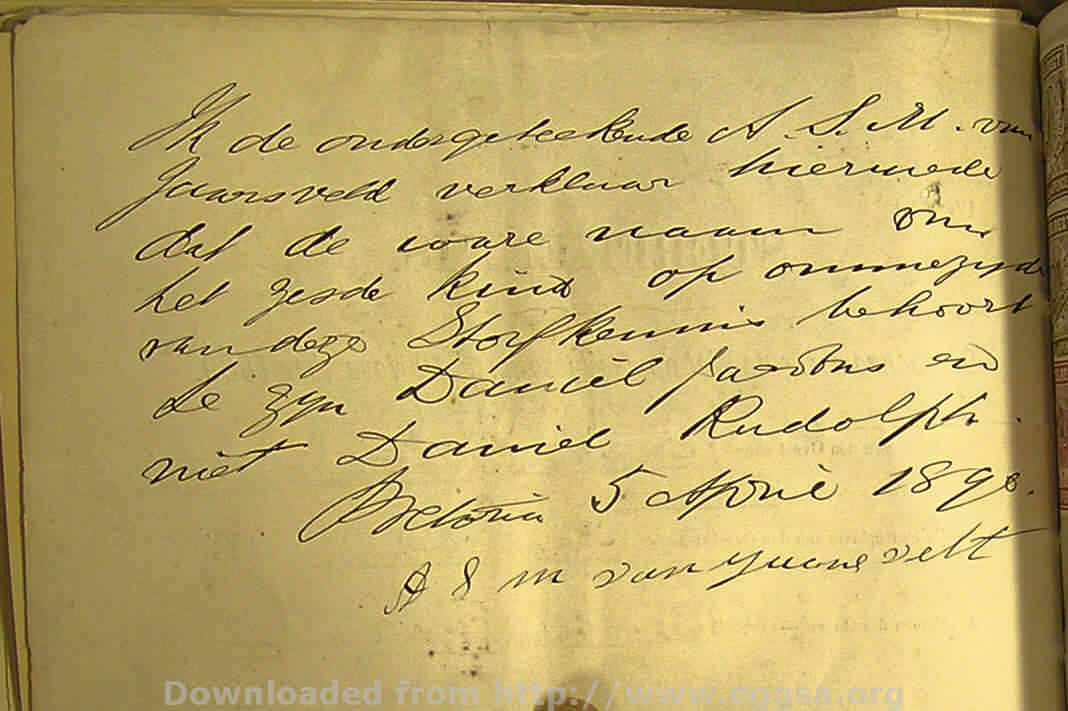 Ik de ondergeteekende A. S. M. van
Jaarsveld verklaar hiermede
dat de ware naam van
het zesde kind op ommezijde
van deze Sterfkennis behoort
te zijn Daniel Jacobus en
niet Daniel Rudolph.
Pretoria 5 April 1890.
A S M van yaarsvelt
Downloaded from http://www.eggsa.org